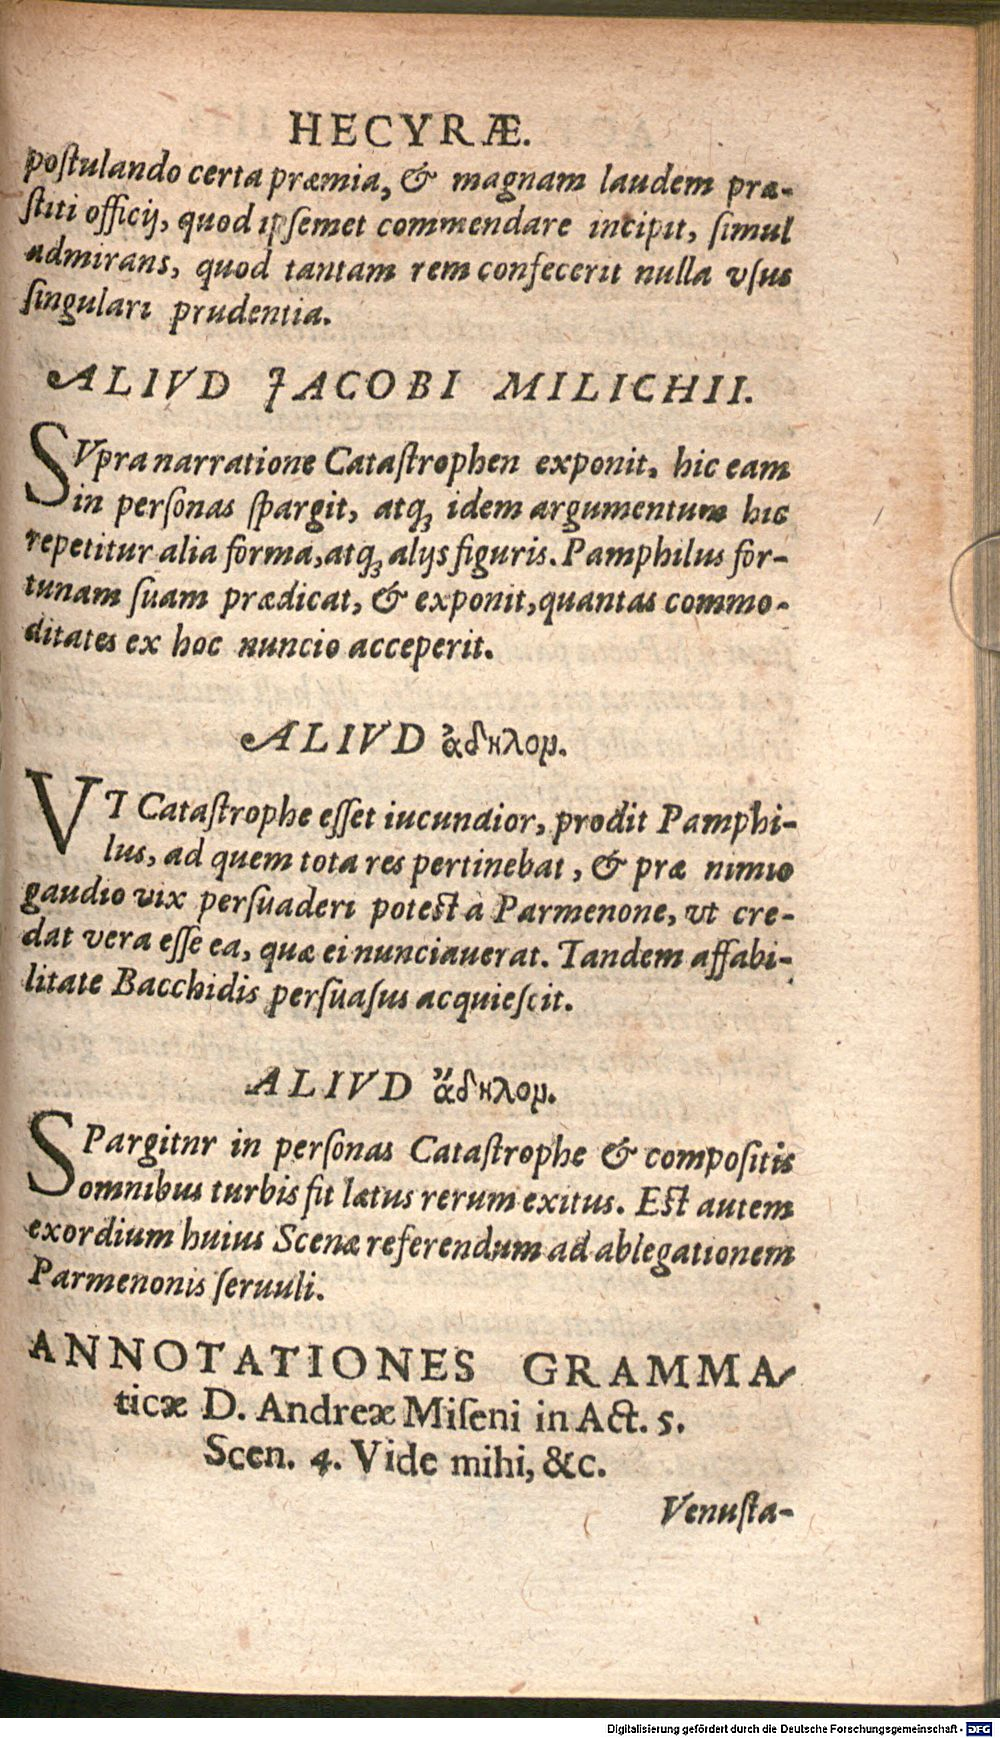 HECYRÆ.
poſtulando certa præmia, & magnam laudem præ-
ſtiti officij, quod ipſemet commendare incipit, ſimul
admirans, quod tantam rem confecerit nulla vſus
ſingulari prudentia.
ALIVD JACOBI MILICHII.
SVpra narratione Cataſtrophen exponit, hic eam
in perſonas ſpargit, atq; idem argumentum hic
repetitur alia forma, atq; alijs figuris. Pamphilus for-
tunam ſuam prædicat, & exponit, quantas commo-
ditates ex hoc nuncio acceperit.
ALIVD ἀδηλομ.
VT Cataſtrophe eſſet iucundior, prodit Pamphi-
lus, ad quem tota res pertinebat, & præ nimio
gaudio vix perſuaderi poteſt à Parmenone, vt cre-
dat vera eſſe ea, quæ ei nunciauerat. Tandem affabi-
litate Bacchidis perſuaſus acquieſcit.
ALIVD ἄδηλομ.
SPargitnr in perſonas Cataſtrophe & compoſitis
omnibus turbis fit lætus rerum exitus. Eſt autem
exordium huius Scenæ referendum ad ablegationem
Parmenonis ſeruuli.
ANNOTATIONES GRAMMA-
ticæ D. Andreæ Miſeni in Act. 5.
Scen. 4. Vide mihi, &c.
Venuſta-
Digitalisierung gefördert durch die Deutsche Forschungsgemeinschaft - DFG